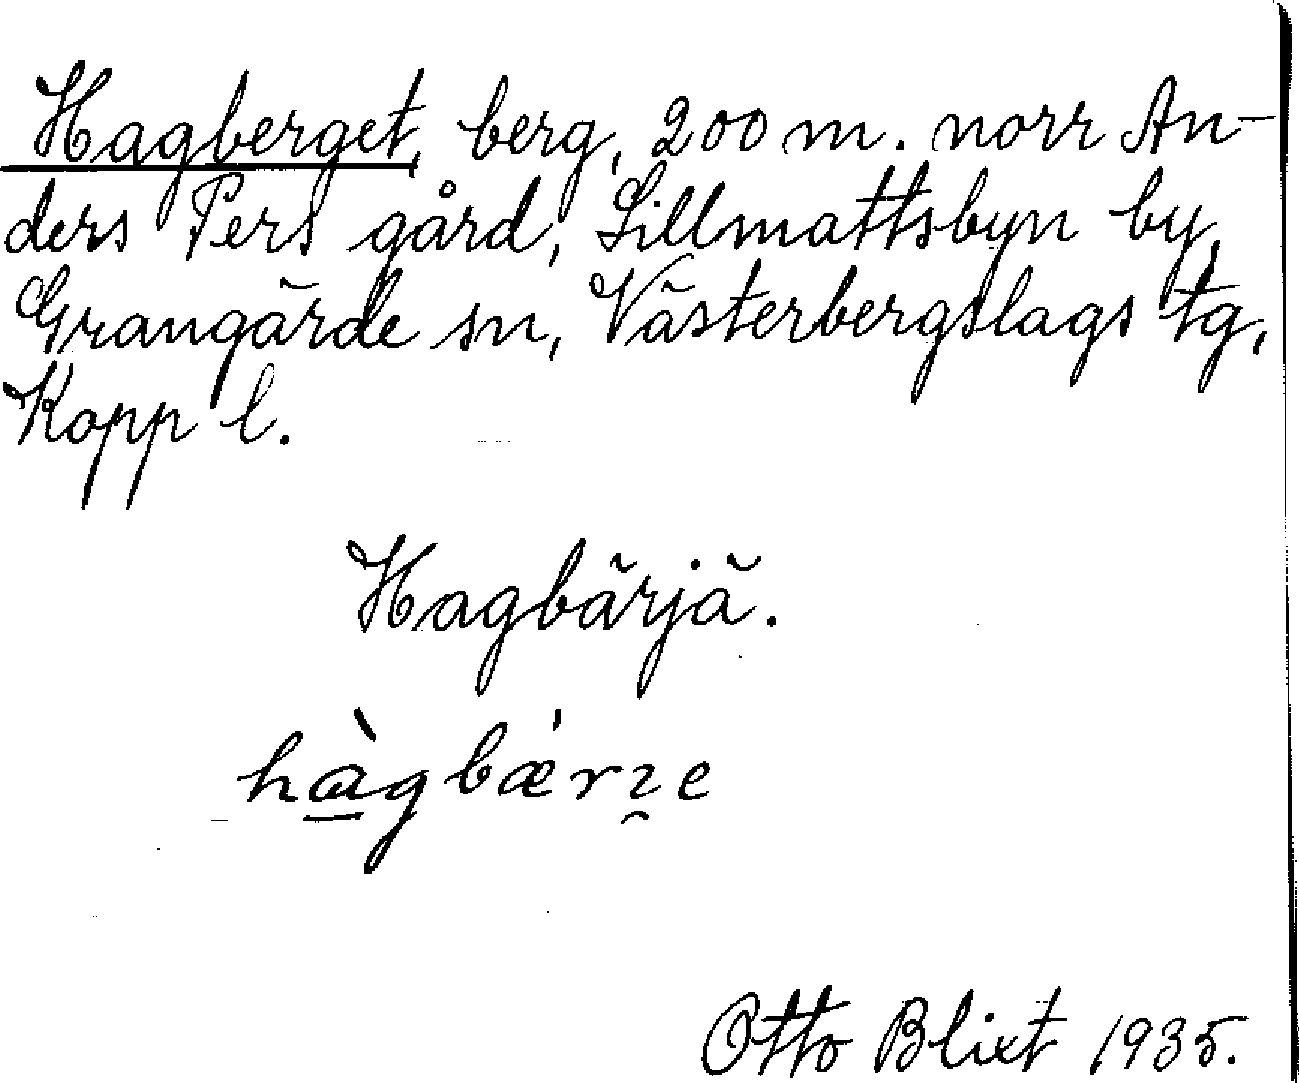 Hagberget, berg, 200 m. norr An-
ders Pers gård, Lillmattsbyn by,
Grangärde sn, Västerbergslags tg,
Kopp l.
Hagbärjä.
hàgbǽrɿe
Otto Blixt 1935.